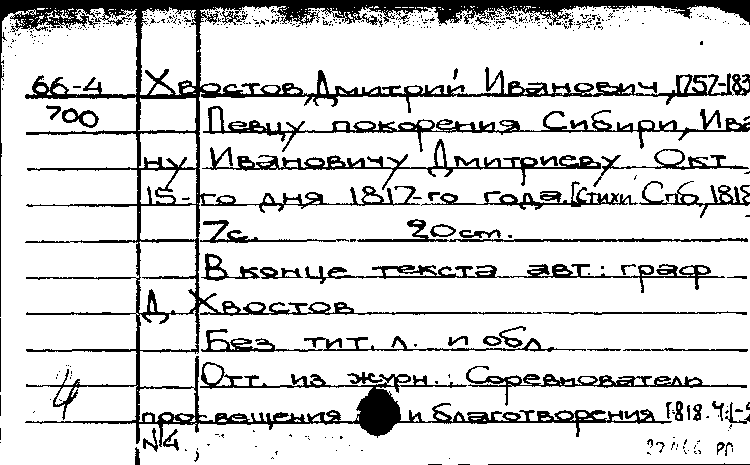 66-4 Хвостов, Дмитрий Иванович, 1757-183
700 Певцу покорения Сибири, Ива
ну Ивановичу Дмитриеву Окт
15-го дня 1817-го года. [Стихи Спб, 1818
7с. 20 cm.
В конце текста авт.: граф
Д. Хвостов
Без тит. л. и обл.
Отт. из журн.: Соревнователь
просвещения и благотворения 1818. Ч.1-
N4